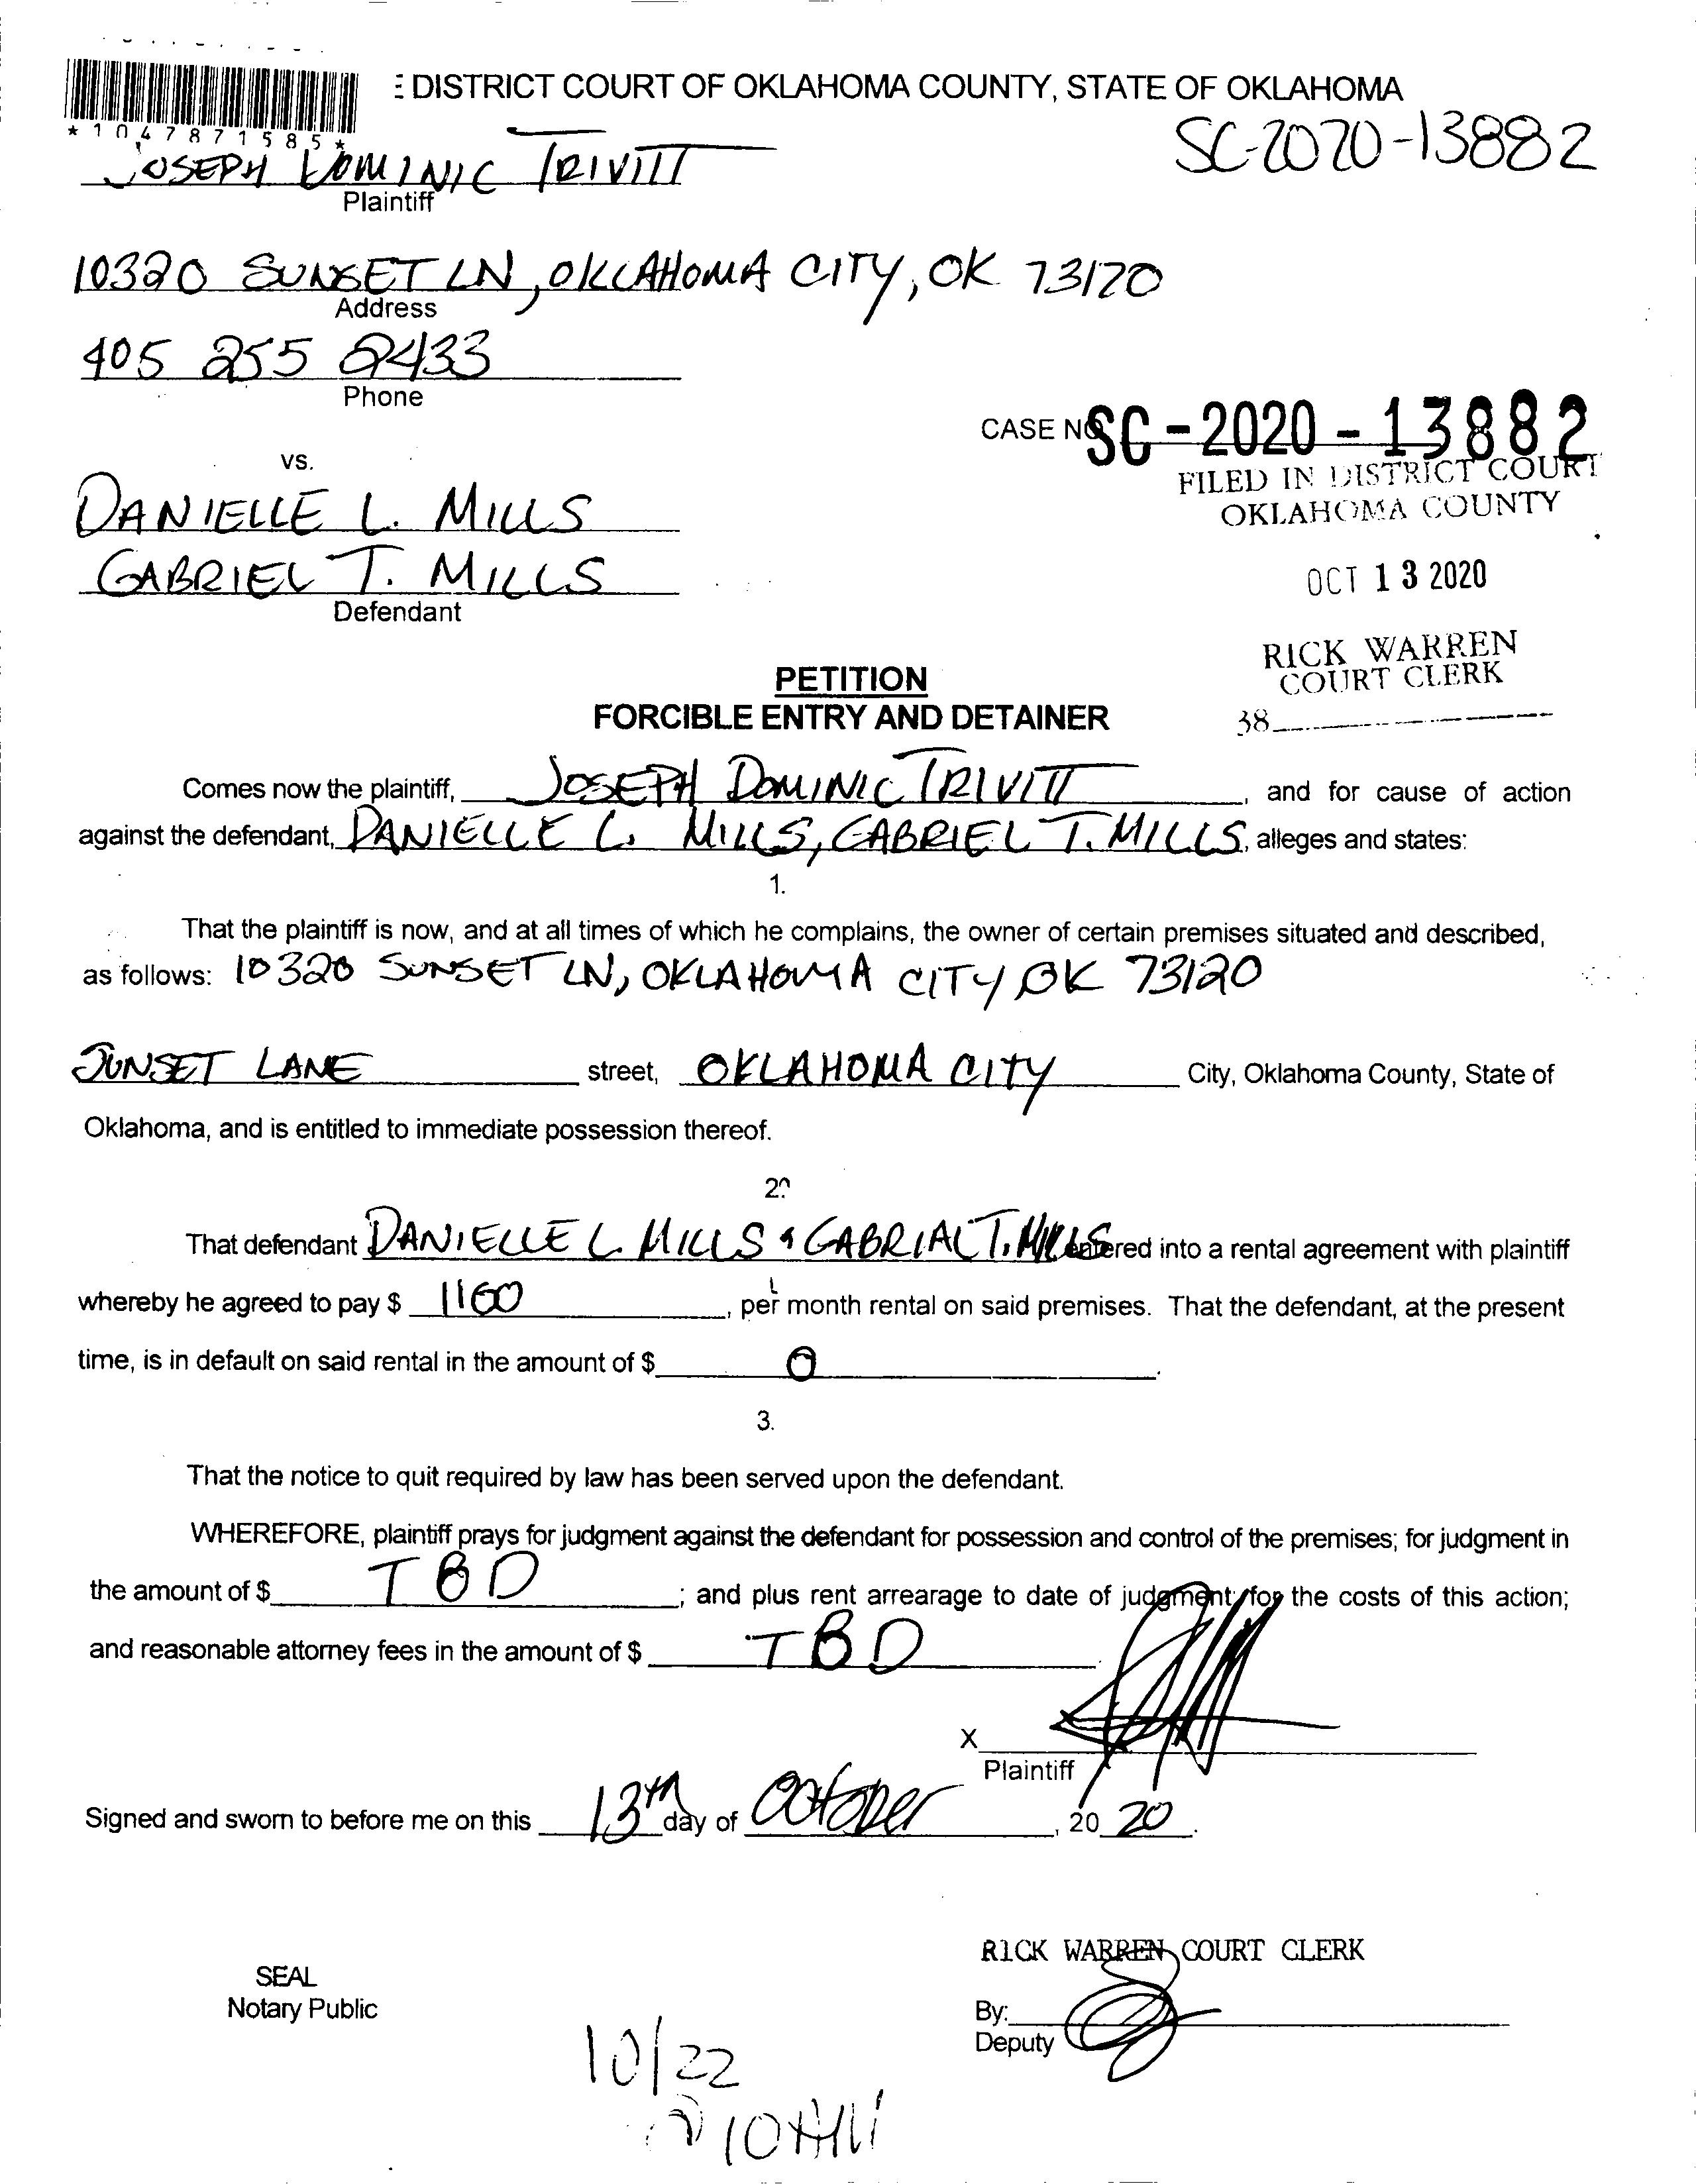 DISTRICT COURT OF OKLAHOMA COUNTY, STATE OF OKLAHOMA
*1047871585*
SC-2020-13882
JOSEPH DOMINIC TRIVITT
Plaintiff
10320 SUNSET LN, OKLAHOMA CITY, OK 73120
Address
405 255 2433
Phone
CASE NO SC-2020-13882
FILED IN DISTRICT COURT
OKLAHOMA COUNTY
vs.
DANIELLE L. MILLS
GABRIEL T. MILLS
Defendant
OCT 13 2020
RICK WARREN
COURT CLERK
38
PETITION
FORCIBLE ENTRY AND DETAINER
Comes now the plaintiff, JOSEPH DOMINIC TRIVITT, and for cause of action
against the defendant, DANIELLE L. MILLS, GABRIEL T. MILLS, alleges and states:
1.
That the plaintiff is now, and at all times of which he complains, the owner of certain premises situated and described,
as follows: 10320 SUNSET LN, OKLAHOMA CITY OK 73120
SUNSET LANE street, OKLAHOMA CITY City, Oklahoma County, State of
Oklahoma, and is entitled to immediate possession thereof.
2.
That defendant DANIELLE L. MILLS & GABRIAL T. MILLS entered into a rental agreement with plaintiff
whereby he agreed to pay $ 1160, per month rental on said premises. That the defendant, at the present
time, is in default on said rental in the amount of $ 0.
3.
That the notice to quit required by law has been served upon the defendant.
WHEREFORE, plaintiff prays for judgment against the defendant for possession and control of the premises; for judgment in
the amount of $ TBD; and plus rent arrearage to date of judgment; for the costs of this action;
and reasonable attorney fees in the amount of $ TBD.
X
Plaintiff
Signed and sworn to before me on this 13th day of October, 2020.
RICK WARREN COURT CLERK
SEAL
Notary Public
By:
Deputy
10/22